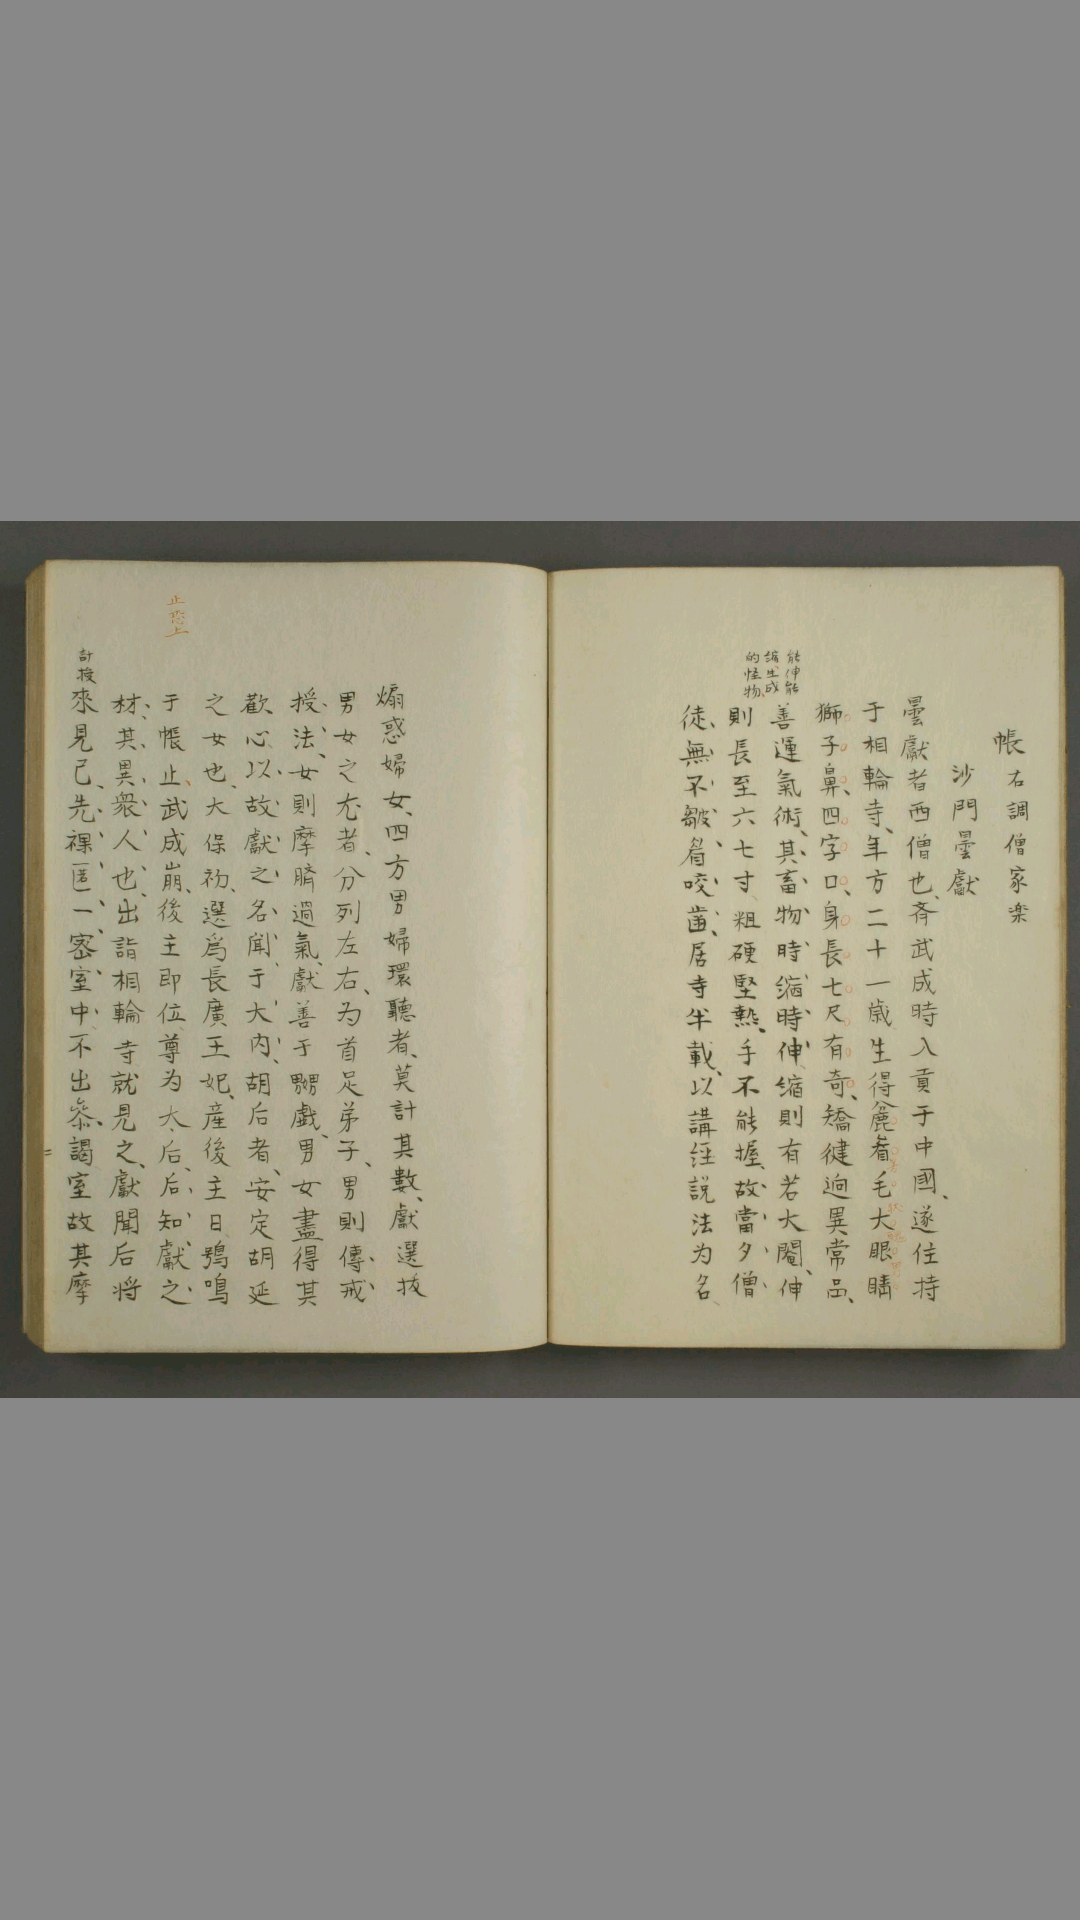 帳右調僧家楽
沙門曇獻
曇獻者西僧也、斉武成時入貢于中國、遂住持
于相輪寺、年方二十一歳生得麄眉毛大眼睛
獅子鼻、四字口、身長七尺有奇、矯健逈異常品、
能伸能
縮生成
的怪物、
善運氣術、其畜物時縮時伸、縮則有若大閹、伸
則長至六七寸、粗硬堅熱、手不能握、故當夕僧
徒、無不皺眉咬歯、居寺半載、以講經説法为名
煽惑婦女、四方男婦環聽者、莫計其數、獻選抜
男女之尤者、分列左右、为首足弟子、男則傳戒、
授法、女則摩臍過氣、獻善于嬲戯、男女盡得其
歡心、以故獻之名聞于大内、胡后者、安定胡延
之女也、大保初、選爲長廣王妃、産後主日、鴞鳴
止
上
于帳止、武成崩、後主即位尊为太后、后知獻之
材、其異衆人也、出詣相輪寺就見之、獻聞后将
計授
來見己、先裸匿一密室中、不出叅謁室故其摩